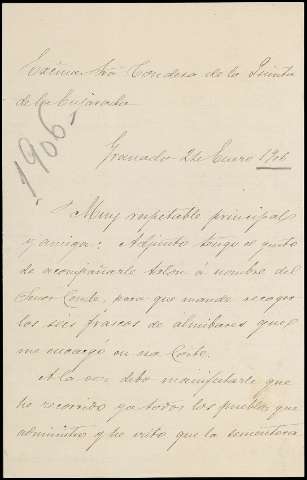 Excma Sra Condesa de la Quinta
de la Enjarada
1906,
Granada 2 de Enero 1906
Muy respetable principal
y amiga: Adjunto tengo el gusto
de acompañarle talon á nombre del
Señor Conde, para que mande recoger
los seis frascos de almibares que
me encargó en su Carta.
A la vez debo manifestarle que
he recorrido ya todos los pueblos que
administro y he visto que la sementera